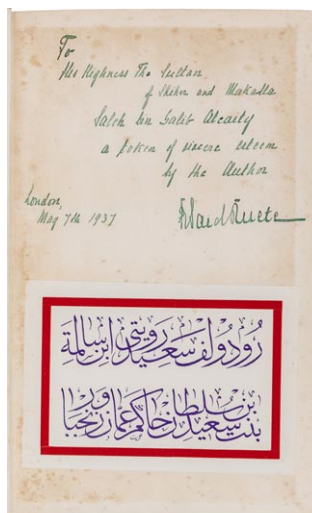 To
His Highness The Sultan,
of Shiher and Makalla
Saleh bin Galib Alcaity
a token of sincere esteem
by the Author
London,
May 7th 1937
R Said Ruete
رودولف سعيد رويتي ابن سالمة
بنت سعيد بن سلطان حاكم عمان وزنجبار